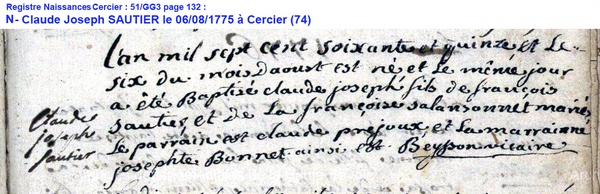 Registre Naissances Cercier : 51/GG3 page 132 :
N- Claude Joseph SAUTIER le 06/08/1775 à Cercier (74)
Claude
joseph
Sautier
L'an mil sept cent soixante et quinze et Le
six du mois daoust est né et Le même jour
a été Baptisé claude joseph fils de françois
Sautier et de La françoise salansonnet mariés,
Le parrain est claude préjoux, et La marrainne
josephte Bonnet ainsi est Beysson vicaire